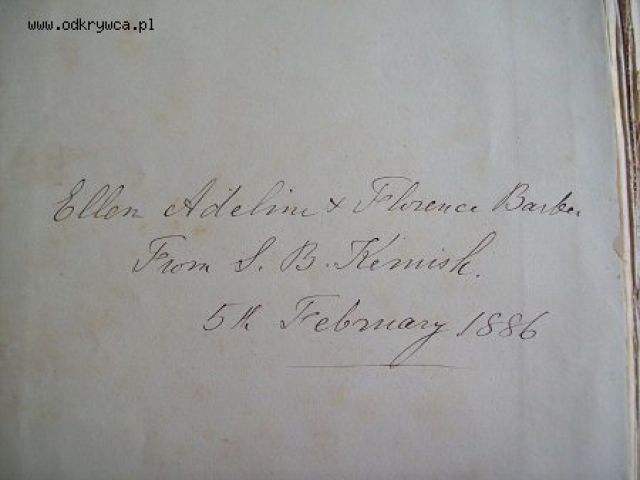 www.odkrywca.pl
Ellen Adeline & Florence Barker
From S. B. Kemish.
5th February 1886